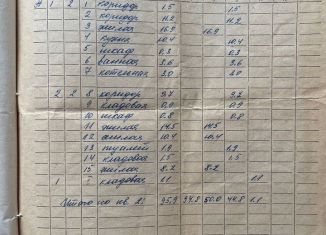 А 1 2 1 коридор 1.5 1.5
2 коридор 11.2 11.2
3 жилая 16.9 16.9
4 кухня 10.4 10.4
5 шкаф 0.3 0.3
6 ванная 3.6 3.6
7 котельная 3.0 3.0
2 2 8 коридор 9.7 9.7
9 кладовая 0.9 0.9
10 шкаф 0.8 0.8
11 жилая 14.5 14.5
12 жилая 10.4 10.4
13 туалет 1.9 1.9
14 кладовая 1.5 1.5
15 жилая 8.2 8.2
1 I кладовая 1.1 1.1
Итого по кв. 2 95.9 94.8 50.0 44.8 1.1